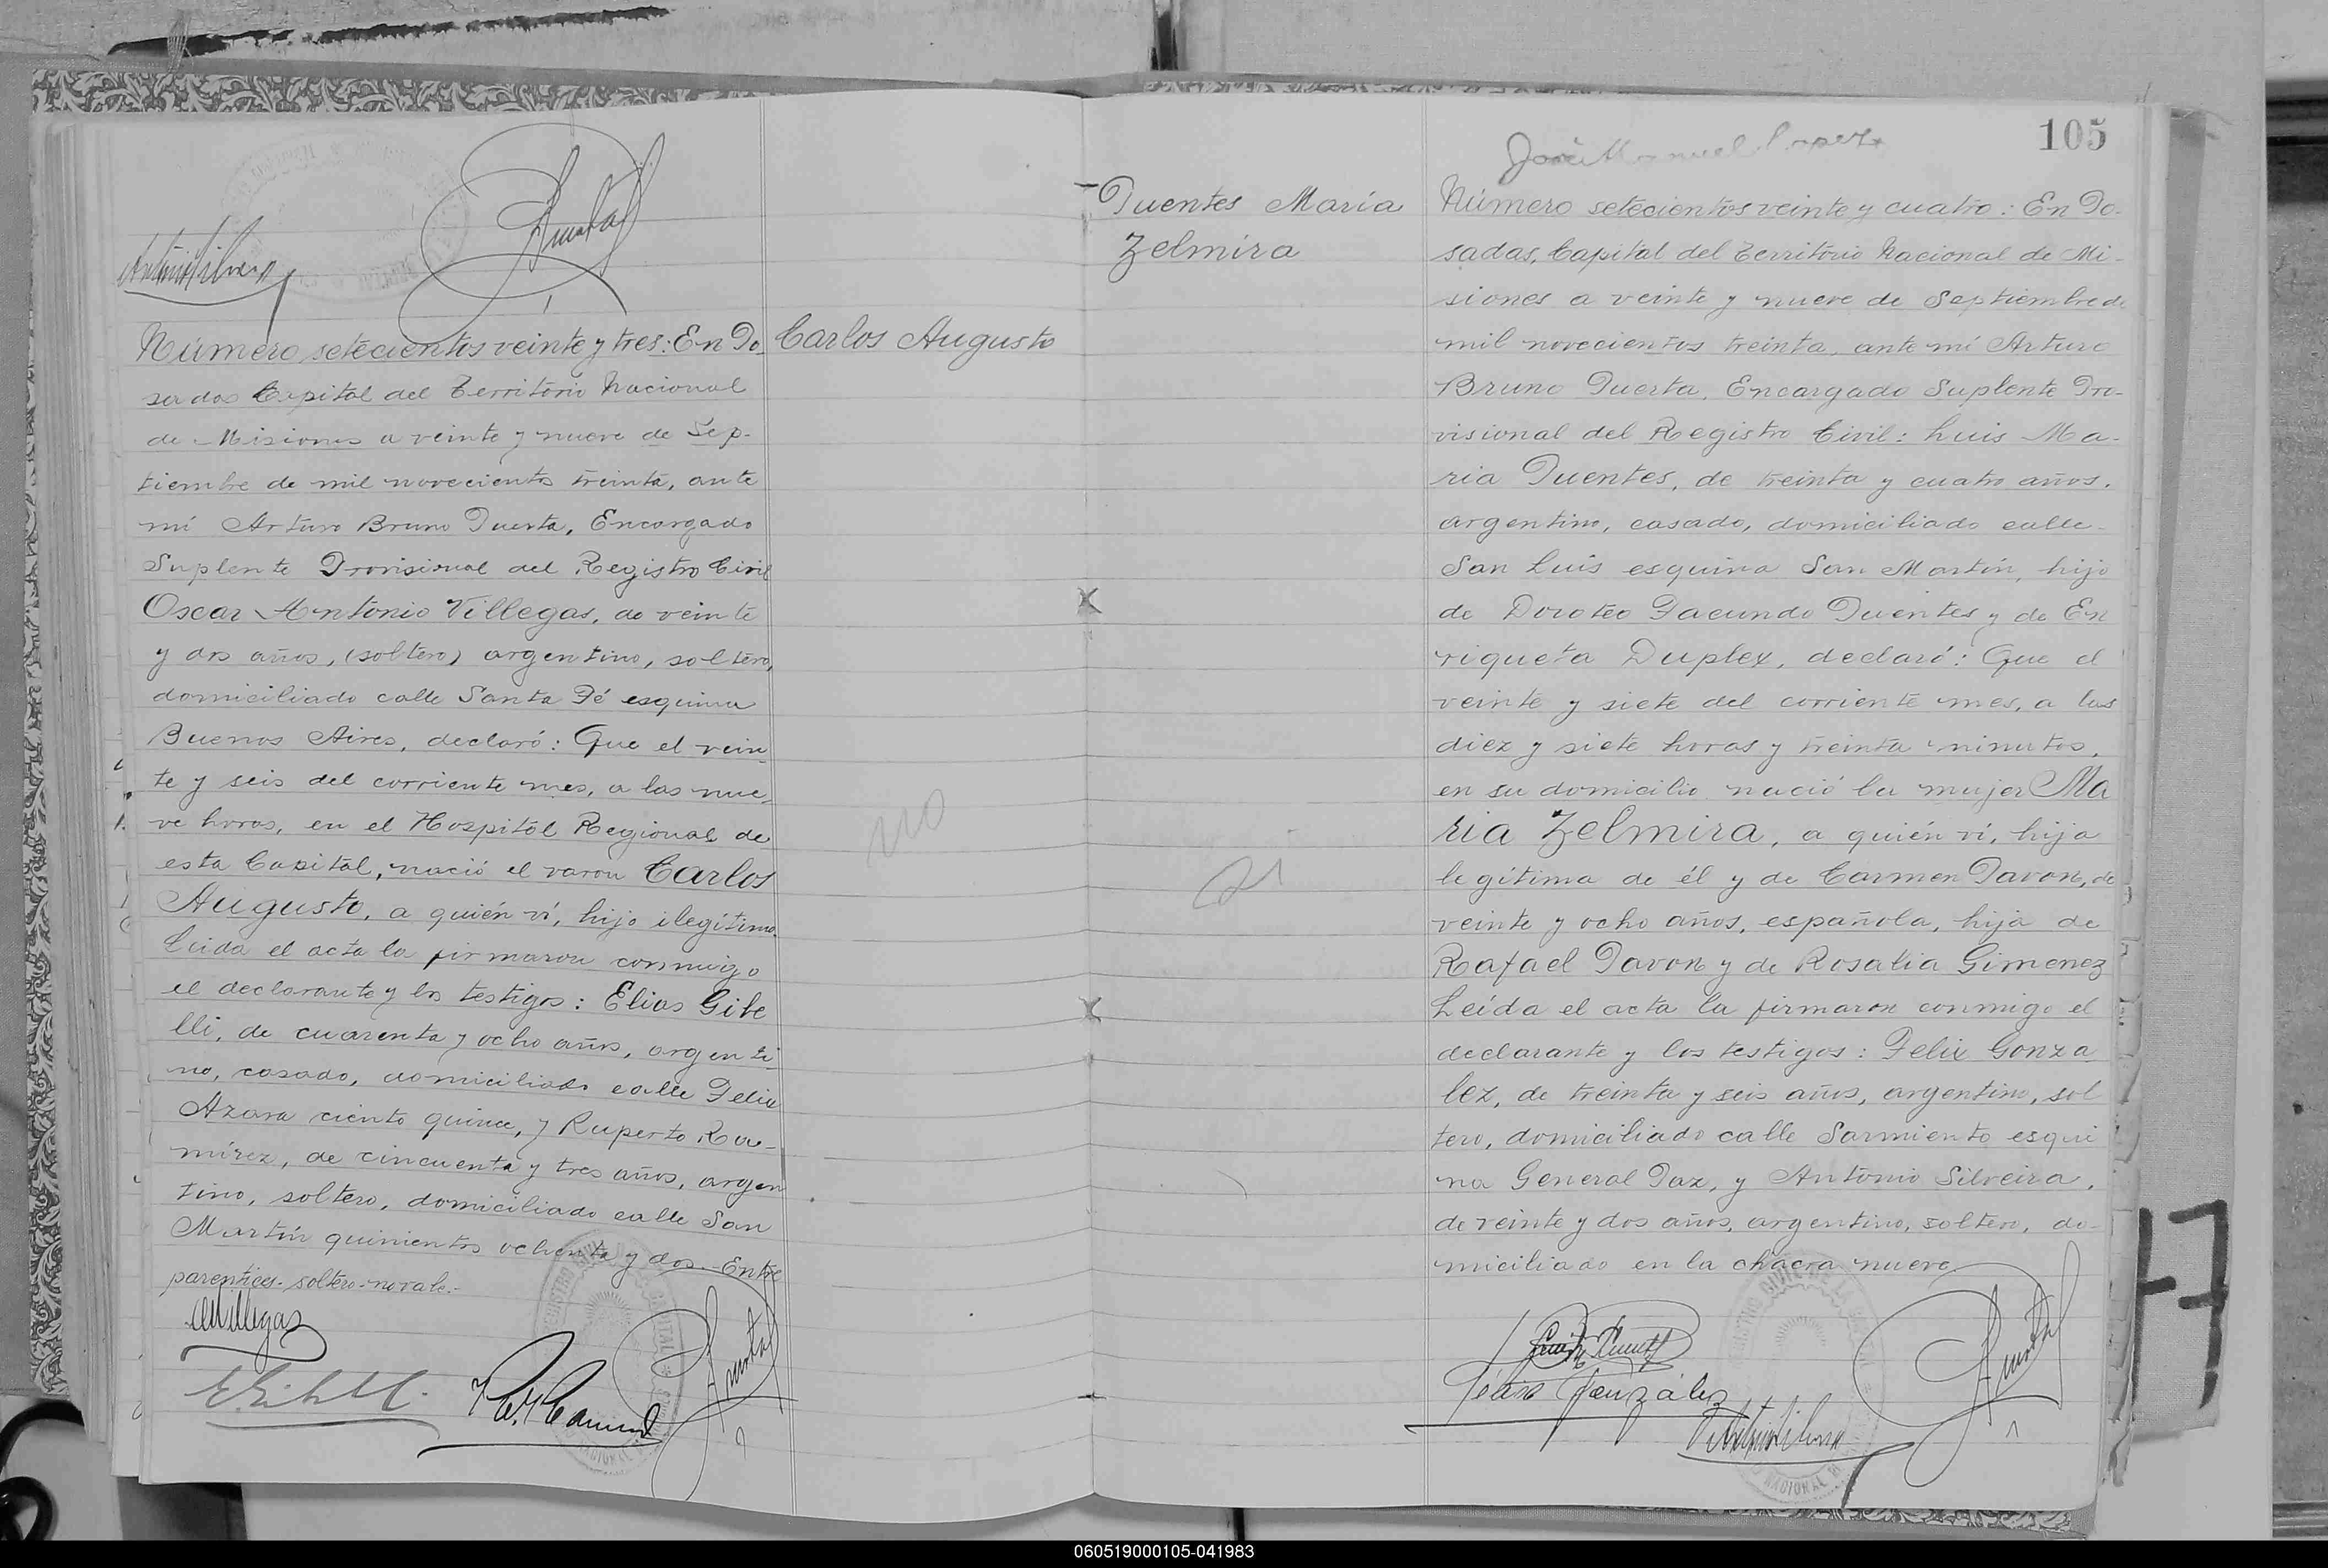 Antonio Silveira
Número setecientos veinte y tres: En Po-
sadas Capital del Territorio Nacional
de Misiones a veinte y nueve de Sep-
tiembre de mil novecientos treinta, ante
mí Arturo Bruno Puerta, Encargado
Suplente Provisional del Registro Civil
Oscar Antonio Villegas, de veinte
y dos años, (soltero) argentino, soltero,
domiciliado calle Santa Fé esquina
Buenos Aires, declaró: Que el vein-
te y seis del corriente mes, a las nue-
ve horas, en el Hospital Regional de
esta Capital, nació el varon Carlos
Augusto, a quién ví, hijo ilegítimo.
Leida el acta la firmaron conmigo
el declarante y los testigos: Elias Gibe
lli, de cuarenta y ocho años, argenti-
no, casado, domiciliado calle Felix
Azara ciento quince, y Ruperto Ra-
mírez, de cincuenta y tres años, argen
tino, soltero, domiciliado calle San
Martín quinientos ochenta y dos.- Entre
parentices- soltero- no vale.-
OAVillegas
E. Gibelli
Carlos Augusto
no
105
José Manuel Lopez
Fuentes María
Zelmira
Número setecientos veinte y cuatro: En Po-
sadas, Capital del Territorio Nacional de Mi-
siones a veinte y nueve de Septiembre de
mil novecientos treinta, ante mí Arturo
Bruno Puerta, Encargado Suplente Pro-
visional del Registro Civil: Luis Ma-
ria Fuentes, de treinta y cuatro años,
argentino, casado, domiciliado calle
San Luis esquina San Martín, hijo
de Doroteo Facundo Fuentes y de En
riqueta Duplex, declaró: Que el
veinte y siete del corriente mes, a las
diez y siete horas y treinta minutos,
en su domicilio nació la mujer Ma
ria Zelmira, a quién ví, hija
legítima de él y de Carmen Pavon, de
veinte y ocho años, española, hija de
Rafael Pavon y de Rosalia Gimenez
Leída el acta la firmaron conmigo el
declarante y los testigos: Felix Gonza
lez, de treinta y seis años, argentino, sol
tero, domiciliado calle Sarmiento esqui
na General Paz, y Antonio Silveira,
de veinte y dos años, argentino, soltero, do-
miciliado en la chacra nueve.
Félix González
Antonio Silveira
060519000105-041983